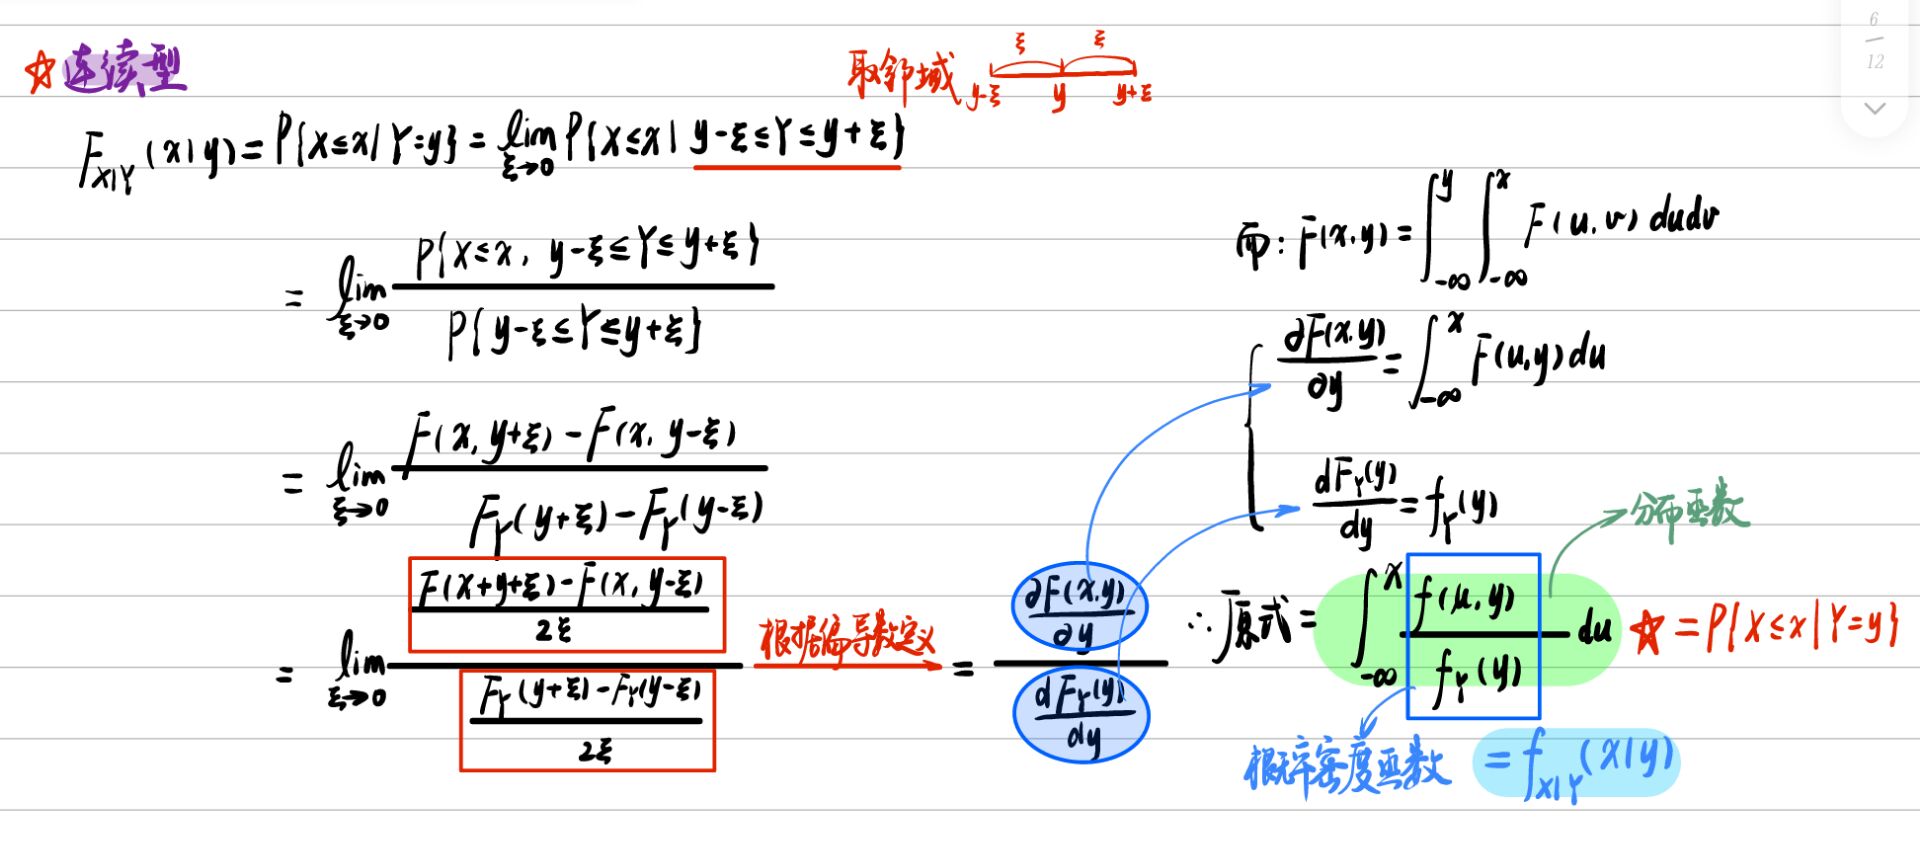 6
12
☆连续型
取邻域 ξ ξ y-ξ y y+ξ
F_{X|Y}(x|y)=P{X≤x|Y=y}=lim_{ξ→0}P{X≤x| y-ξ≤Y≤y+ξ}
= lim_{ξ→0} P{X≤x, y-ξ≤Y≤y+ξ} / P{y-ξ≤Y≤y+ξ}
= lim_{ξ→0} [F(x, y+ξ)-F(x, y-ξ)] / [F_Y(y+ξ)-F_Y(y-ξ)]
= lim_{ξ→0} [(F(x+y+ξ)-F(x, y-ξ))/2ξ] / [(F_Y(y+ξ)-F_Y(y-ξ))/2ξ] 根据偏导数定义 = [∂F(x.y)/∂y] / [dF_Y(y)/dy]
而: F(x.y)=∫_{-∞}^{y}∫_{-∞}^{x}F(u.v)dudv
∂F(x.y)/∂y=∫_{-∞}^{x}F(u.y)du
dF_Y(y)/dy=f_Y(y)
分布函数
∴原式=∫_{-∞}^{x} f(u.y)/f_Y(y) du ☆=P{X≤x|Y=y}
概率密度函数 =f_{X|Y}(x|y)